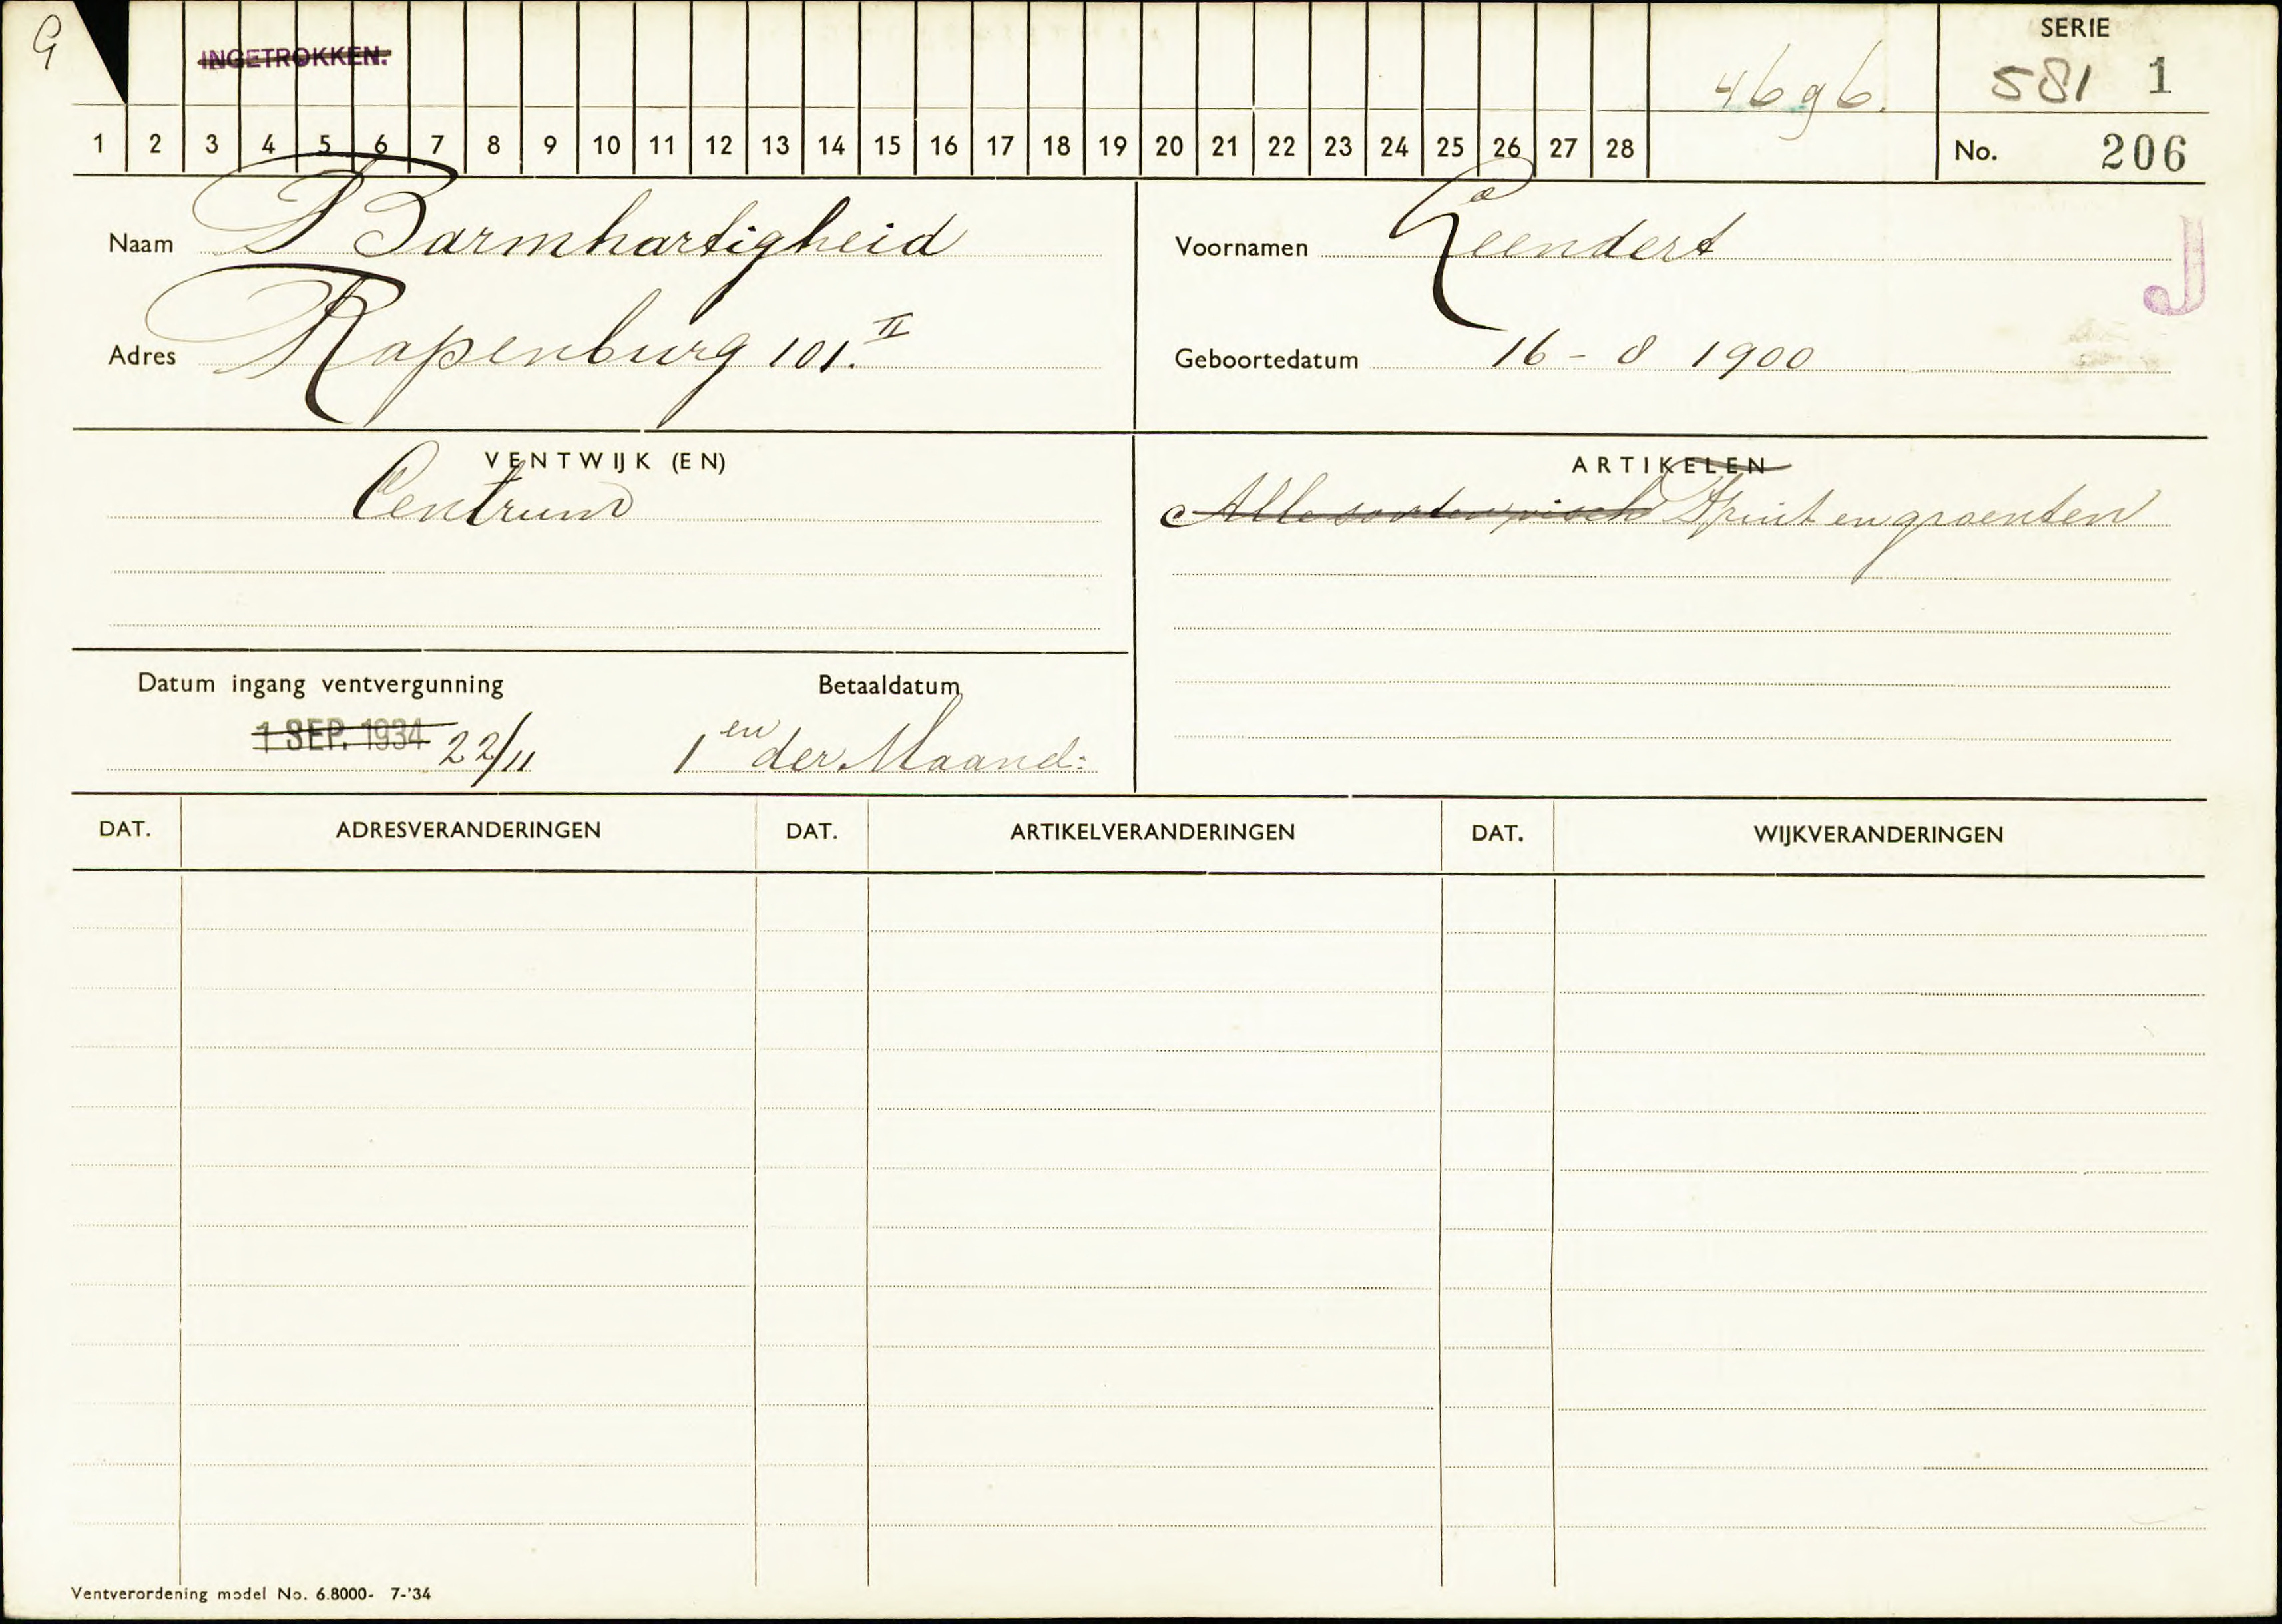 G
INGETROKKEN.
4696.
SERIE
581 1
1 2 3 4 5 6 7 8 9 10 11 12 13 14 15 16 17 18 19 20 21 22 23 24 25 26 27 28
No. 206
Naam Barmhartigheid
Voornamen Leendert
J
Adres Rapenburg 101.II
Geboortedatum 16 - 8 1900
VENTWIJK (EN)
Centrum
ARTIKELEN
Alle soorten visch Fruit en groenten
Datum ingang ventvergunning
1 SEP. 1934 22/11
Betaaldatum
1en der Maand:
DAT. ADRESVERANDERINGEN DAT. ARTIKELVERANDERINGEN DAT. WIJKVERANDERINGEN
Ventverordening model No. 6.8000- 7-'34